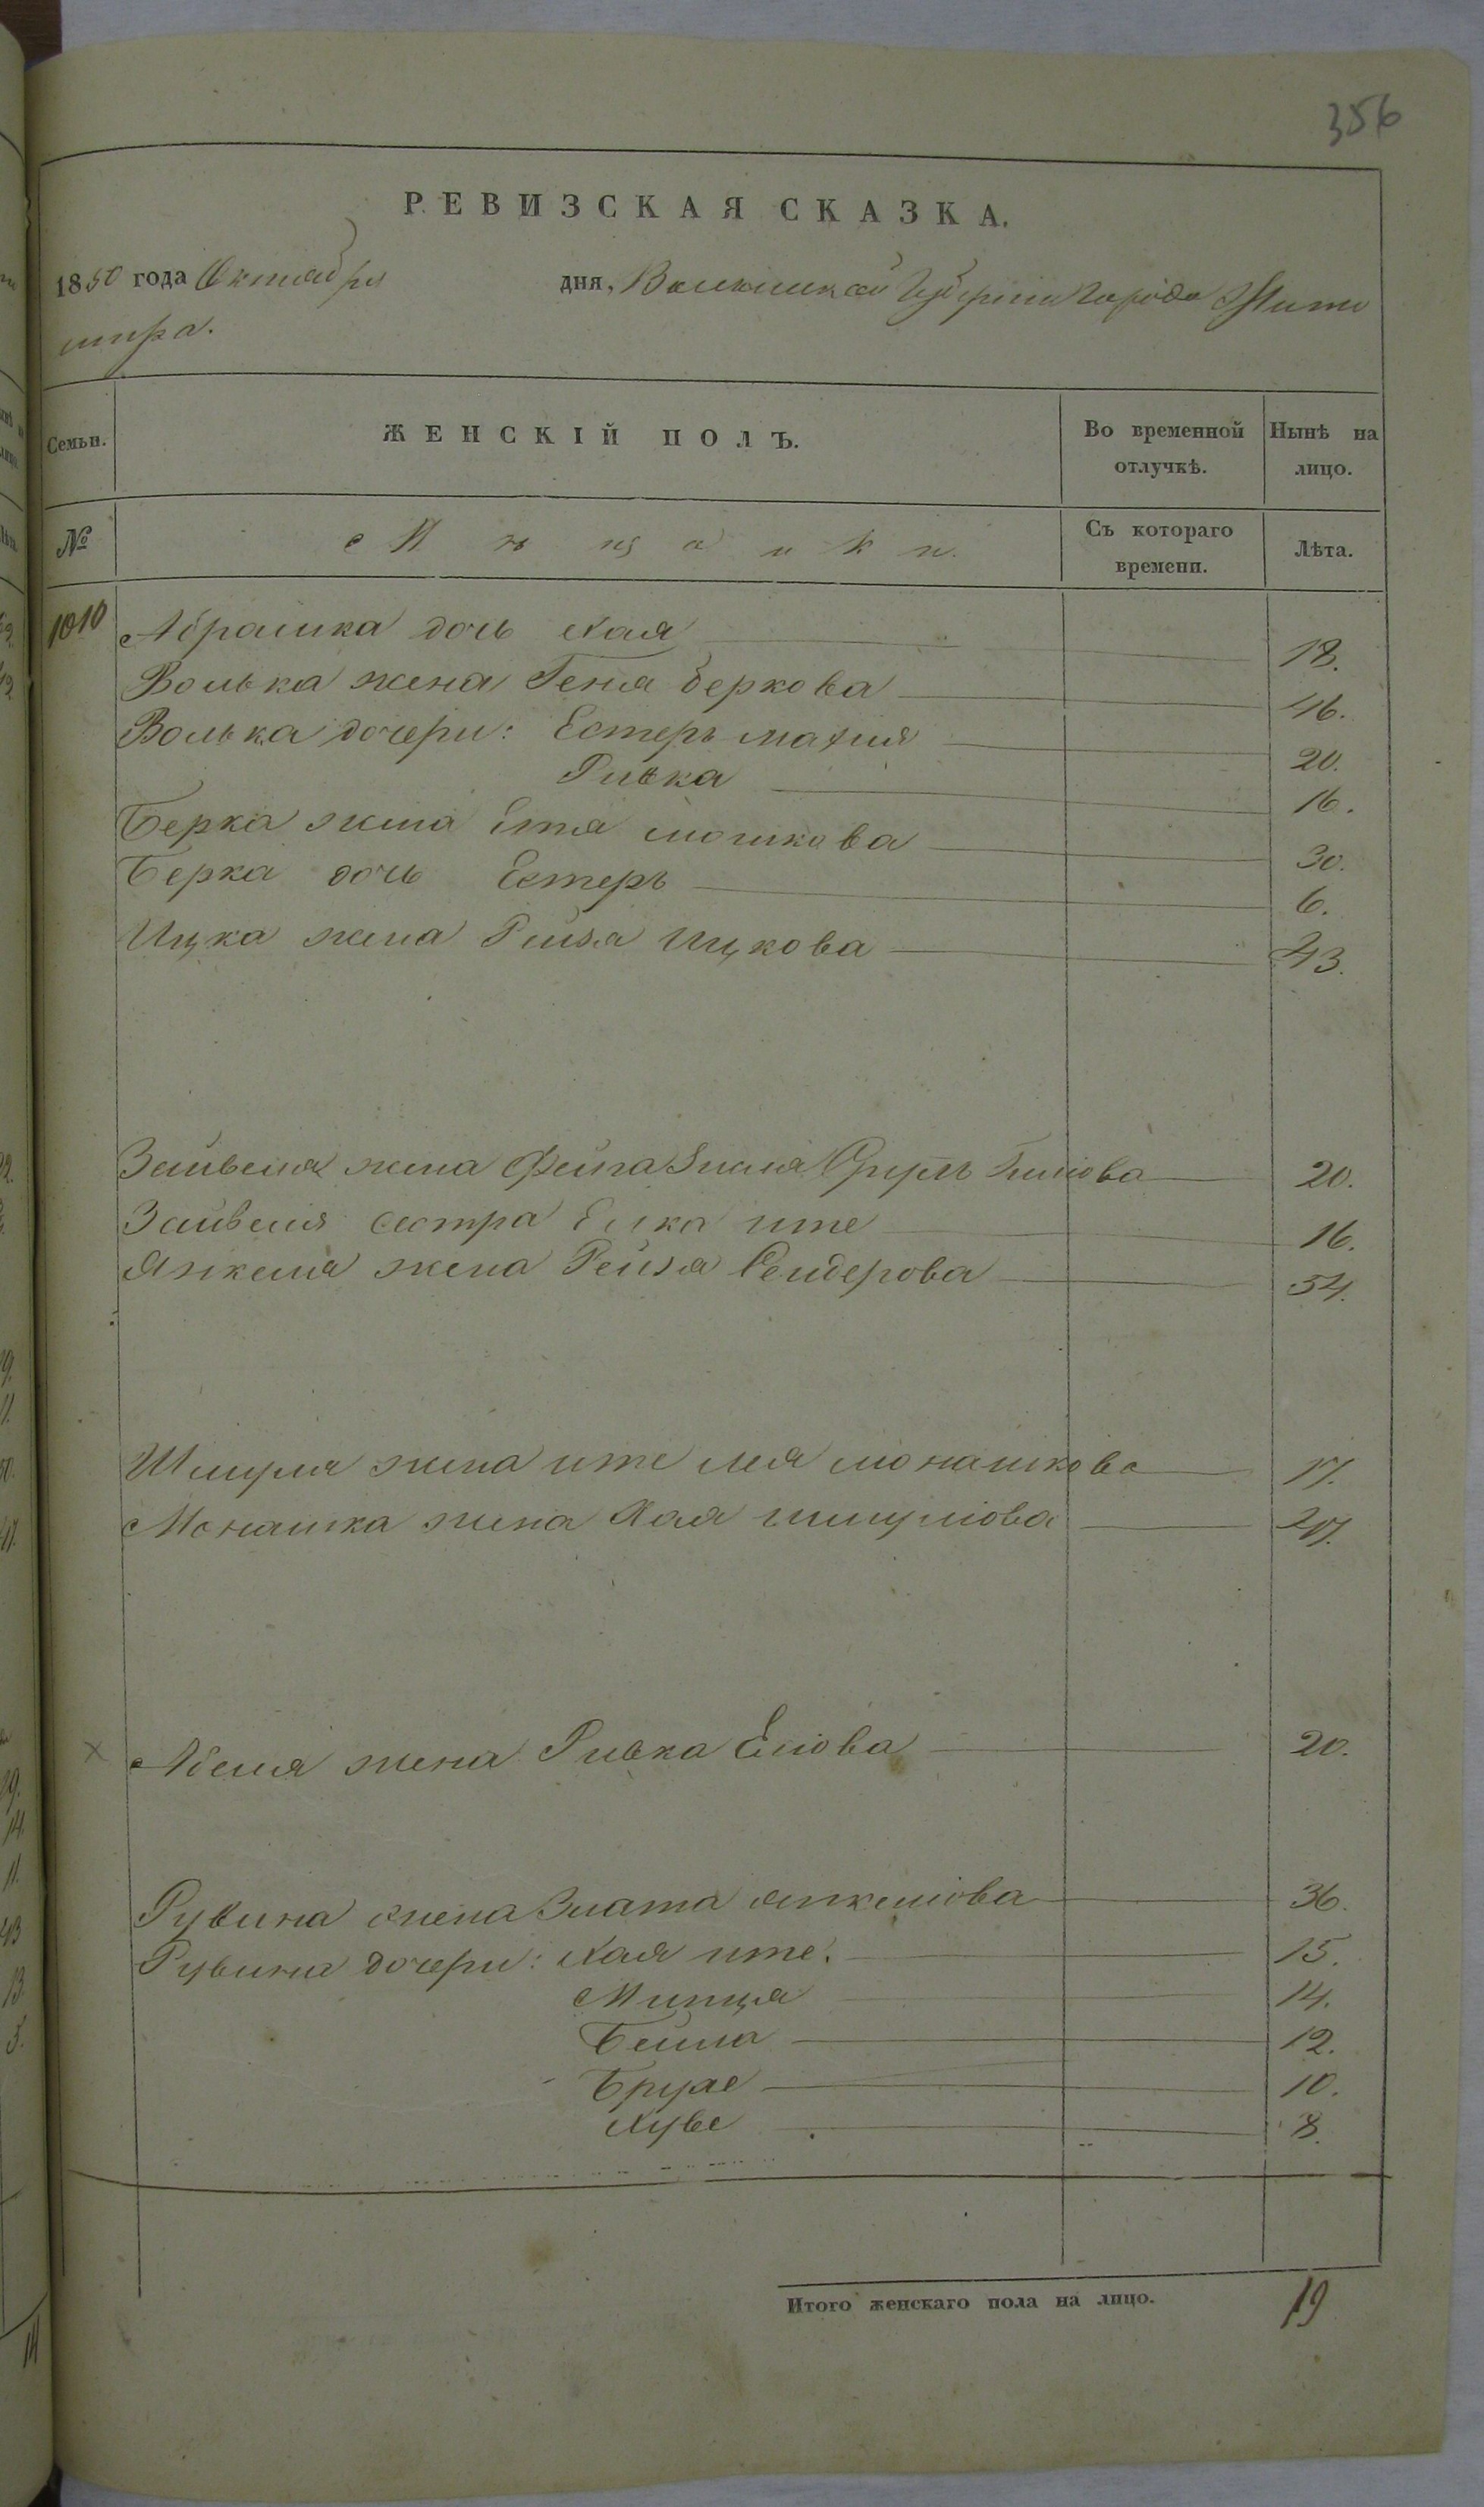 356
РЕВИЗСКАЯ СКАЗКА.
1850 года Октября дня, Волынской Губерніи города Жито
мира.
Семьи. ЖЕНСКІЙ ПОЛЪ. Во временной отлучкѣ. Нынѣ на лицо.
№ Мѣщанки. Съ котораго времени. Лѣта.
1010 Абрашка дочь Хая 18.
Волька жена Геня Беркова 46.
Волька дочери: Естеръ Махля 20.
Ривка 16.
Берка жена Етя Мошкова 30.
Берка дочь Естеръ 6.
Ицка жена Рейзя Ицкова 43.
Зейвеля жена Фейга 20.
Зейвеля сестра Елка Ите 16.
Янкеля жена Рейзя Сендерова 54.
Шмуля жена Ите Лея Монашкова 17.
Монашка жена Хая Шмулiова 27.
Абеля жена Ривка Елiова 20.
Рувина жена Злата Янкелiова 36.
Рувина дочери: Хая Ите. 15.
Минця 14.
Бейла 12.
Брухе 10.
Хуве 8.
Итого женскаго пола на лицо. 19